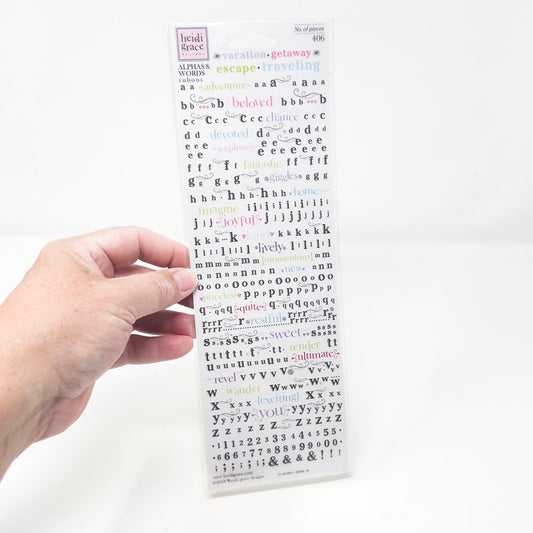 heidi
grace
designs
No. of pieces
406
ALPHAS &
WORDS
rubons
vacation • getaway
escape • traveling
a a adventure a a a a a
b b beloved b b b b
c c c c c chance c c
devoted d d d d
e e e explore e e e e e e
fantastic f f f f
g g g g giggles g g g
h h h h h home
imagine i i i i i i i
j j j joyful j j j j j j
k k k k kind k k k k
l l l l l lively l l l l l l
m m m m {momentous} m m
n n n n n n new n n n
o o o o o o o o o o o o o
priceless p p p p p p p p
q q q quite q q q q q q
r r r r restful r r r r
s s s s s s sweet s s s s
t t t t t t tender t t t
u u u u u u u {ultimate}
revel v v v v v v v
w wander w w w w w
x x x x {exciting} x x x
y y y y you y y y y y y
z z z z z z z z z z z
1 1 2 2 2 3 3 3 4 4 4 5 5 5
6 6 6 7 7 7 8 8 8 9 9 9 0 0 0
; ; ; ; ; & & & & ! ! !
www.heidigrace.com
©2009 heidi grace designs